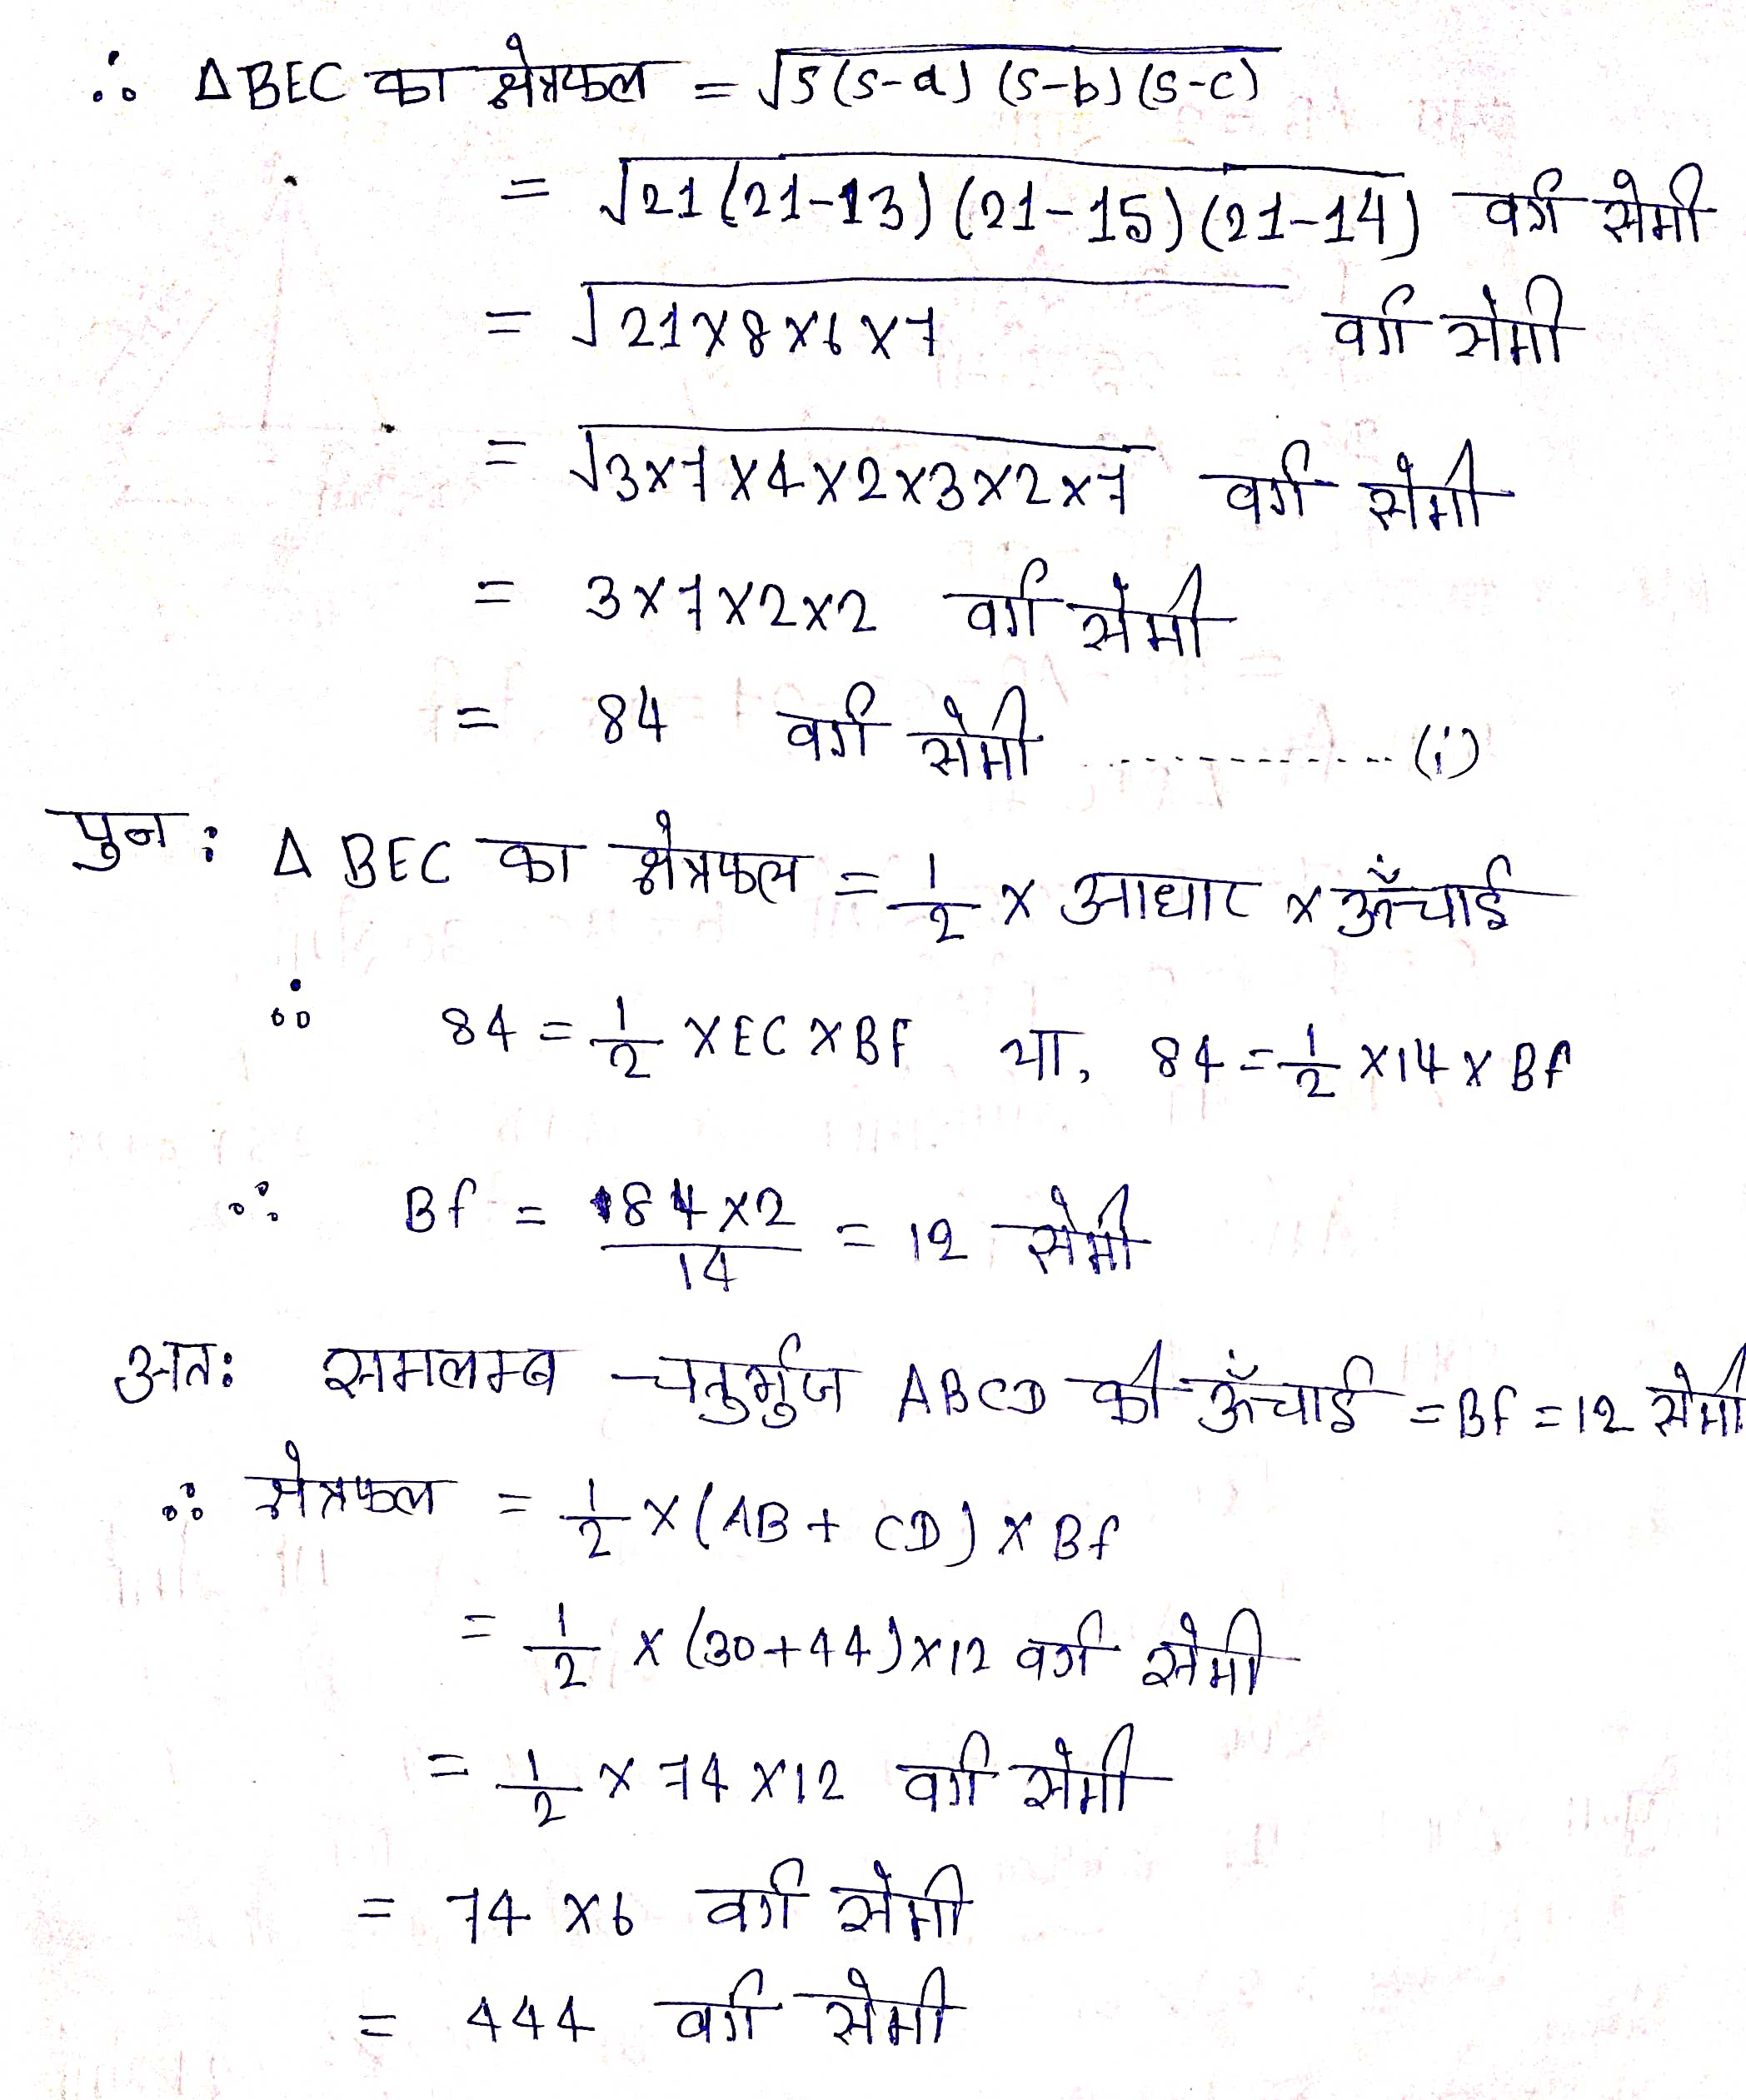 ∴ ΔBEC का क्षेत्रफल = √s(s-a)(s-b)(s-c)
= √21(21-13)(21-15)(21-14) वर्ग सेमी
= √21×8×6×7 वर्ग सेमी
= √3×7×4×2×3×2×7 वर्ग सेमी
= 3×7×2×2 वर्ग सेमी
= 84 वर्ग सेमी ............ (i)
पुन: Δ BEC का क्षेत्रफल = 1/2 × आधार × ऊँचाई
∴ 84 = 1/2 × EC × BF या, 84 = 1/2 × 14 × Bf
∴ Bf = 84×2/14 = 12 सेमी
अत: समलम्ब चतुर्भुज ABCD की ऊँचाई = Bf = 12 सेमी
∴ क्षेत्रफल = 1/2 × (AB + CD) × Bf
= 1/2 × (30+44)×12 वर्ग सेमी
= 1/2 × 74 × 12 वर्ग सेमी
= 74 × 6 वर्ग सेमी
= 444 वर्ग सेमी